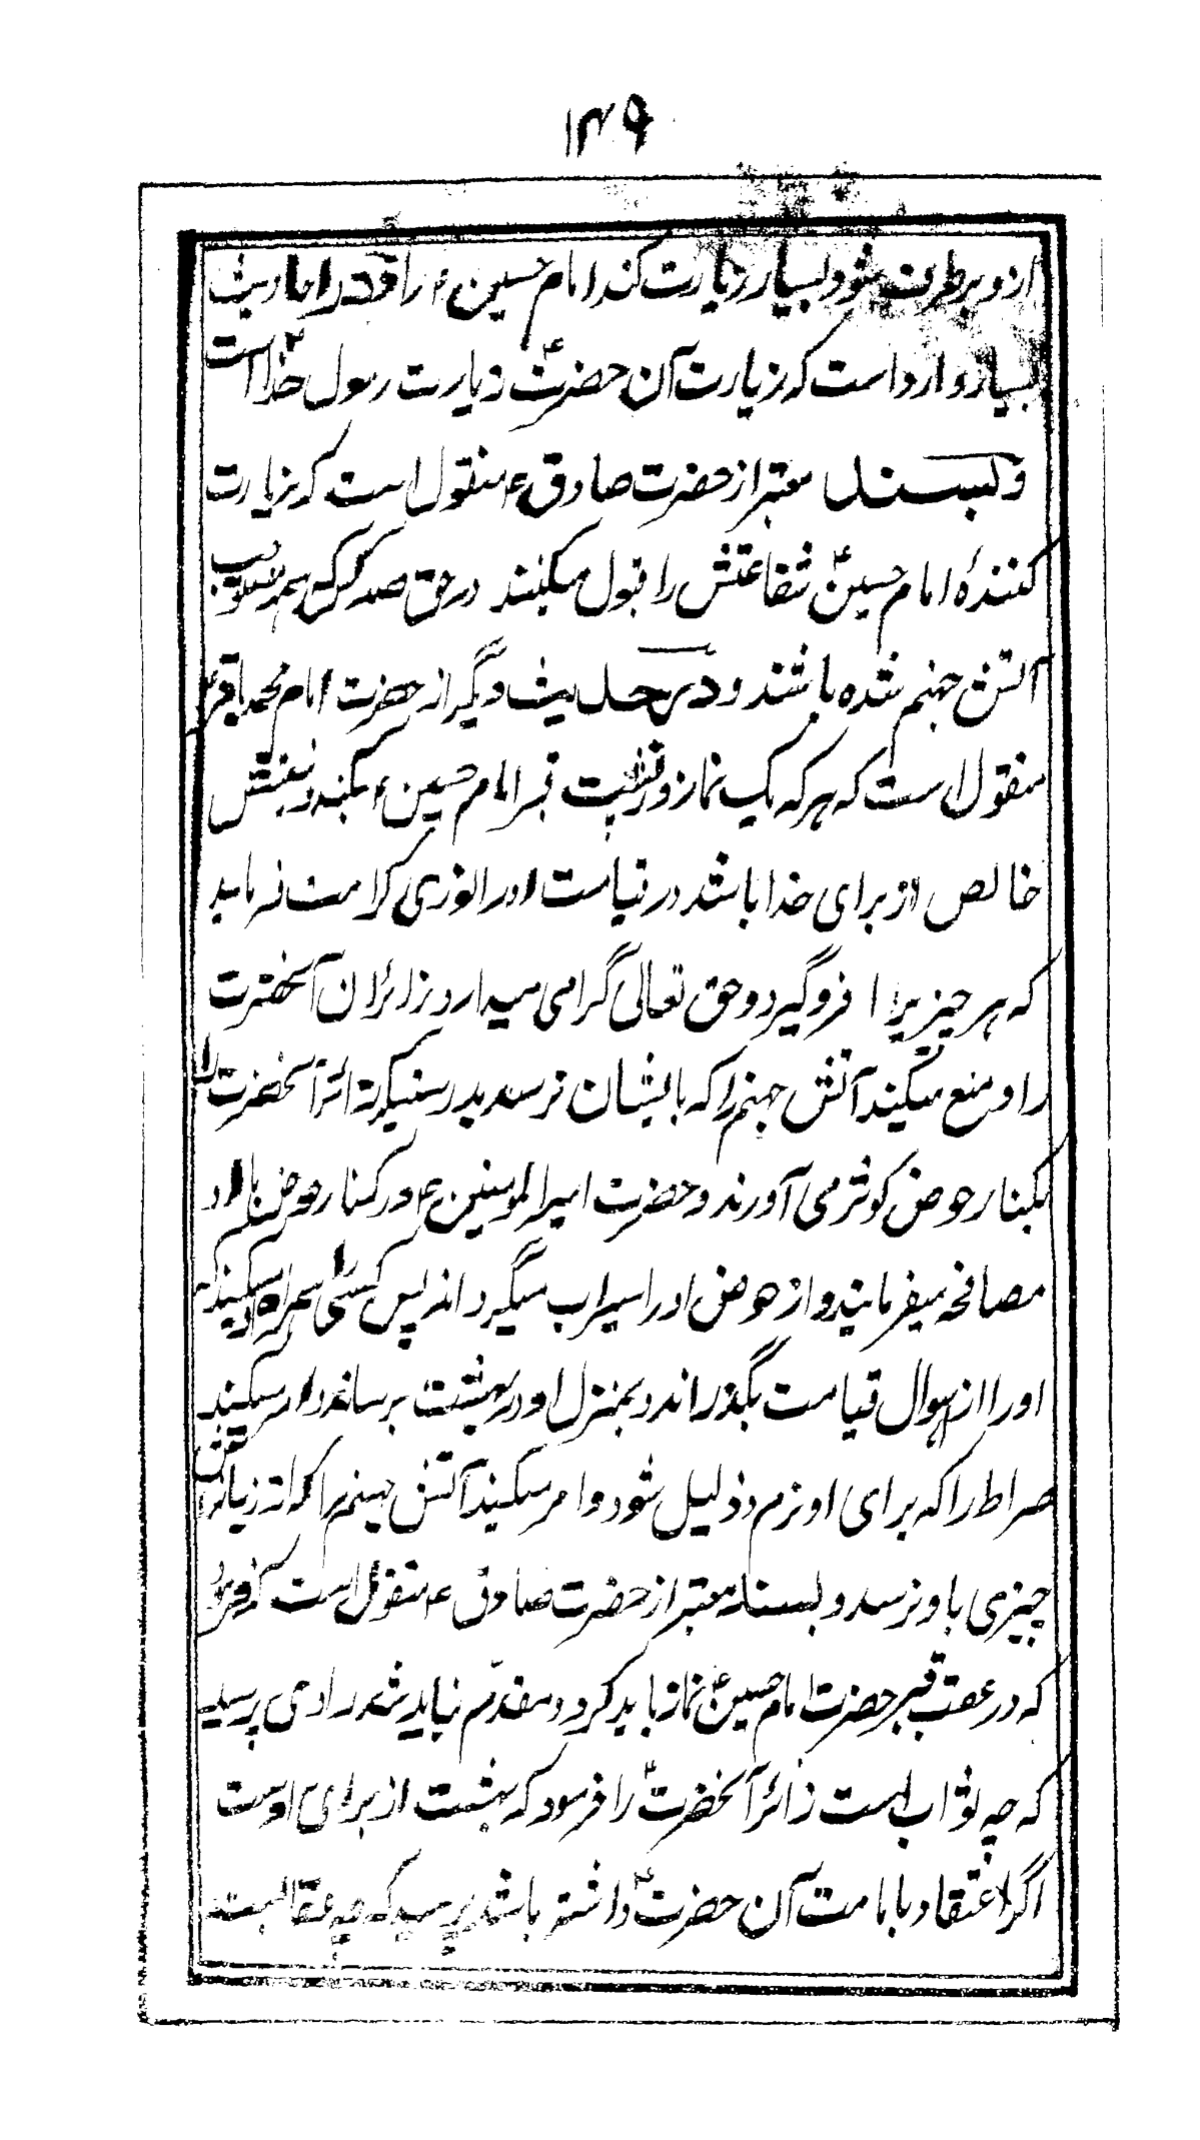 ۱۴۹
ازو برطرف شود بسیار زیارت کند امام حسین ع را و در احادیث
بسیار وارد است که زیارت آن حضرت ع زیارت رسول خدا ص است
و بسند معتبر از حضرت صادق ع منقول است که زیارت
کنندۀ امام حسین ع شفاعتش را قبول میکنند در حق صد کس که همه مستوجب
آتش جهنم شده باشند و در حدیث دیگر از حضرت امام محمد باقر ع
منقول است که هرکه یک نماز در پشت قبر امام حسین ع بکند و نیتش
خالص از برای خدا باشد در قیامت او را نوری کرامت فرماید
که هر چیز یرا فروگیرد و حق تعالی گرامی میدارد زائران آنحضرت
را و منع میکند آتش جهنم را که بایشان نرسد بدرستیکه زائر آنحضرت را
بکنار حوض کوثر می آورند و حضرت امیرالمومنین ع در کنار حوض با او
مصافحه میفرمایند و از حوض او را سیراب میگرداند پس کسی را همراه او میکند که
او را از هوال قیامت بگذراند و بمنزل او در بهشت برساند و امر میکند
صراط را که برای او نرم و ذلیل شود و امر میکند آتش جهنم را که از زیانه اش
چیزی باو نرسد و بسند معتبر از حضرت صادق ع منقول است که فرمود
که در عقب قبر حضرت امام حسین ع نماز باید کرد و مقدم نباید شد راوی پرسید
که چه ثواب است زائر آنحضرت ع را فرمود که بهشت از برای اوست
اگر اعتقاد بامامت آن حضرت ع داشته باشد پرسید که چه عقابست